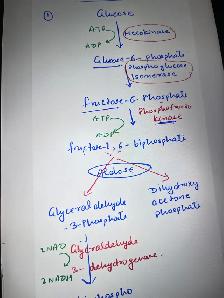 ①
Glucose
ATP
Hexokinase
ADP
Glucose-6-phosphate
Phosphoglucose
Isomerase
fructose-6-Phosphate
ATP
Phosphofructo
kinase
ADP
fructose-1,6-biphosphate
Aldolase
Glyceraldehyde
-3-Phosphate
Dihydroxy
acetone
phosphate
2NAD
Glyceraldehyde
3-dehydrogenase.
2NADH